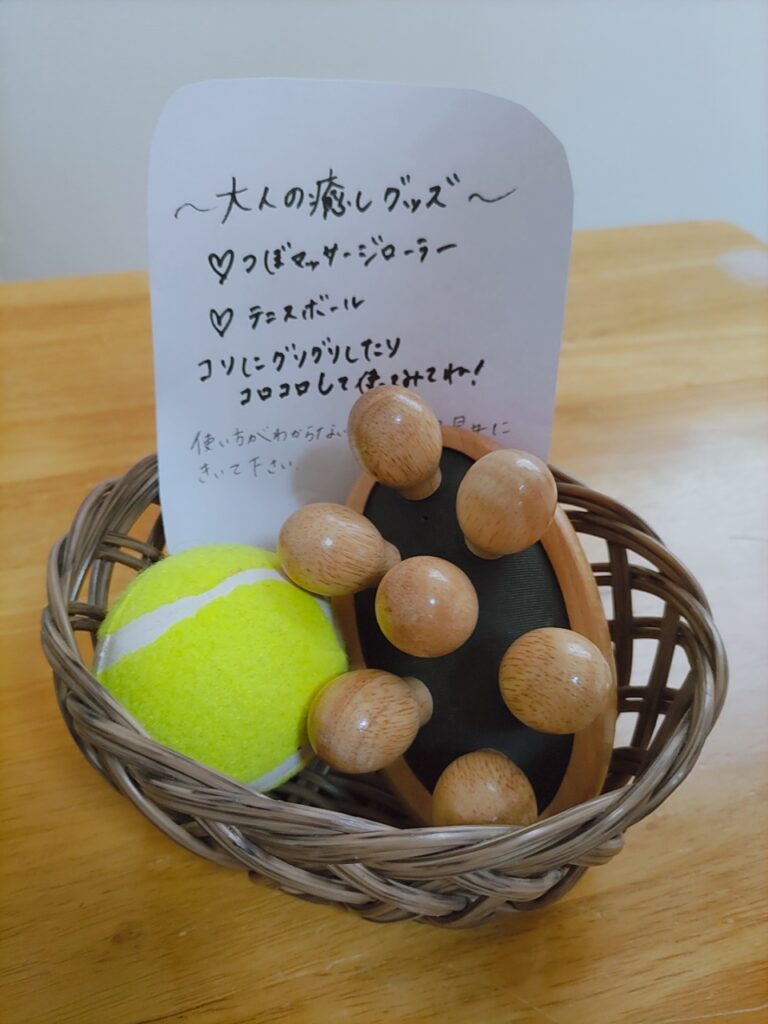 〜大人の癒しグッズ〜
♡つぼマッサージローラー
♡テニスボール
コリにグリグリしたり
コロコロして使ってみてね!
使い方がわからない
きいて下さい。